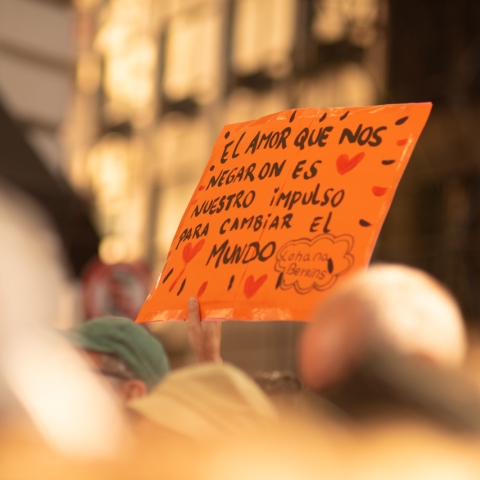 EL AMOR QUE NOS
NEGARON ES
NUESTRO iMPULSO
PARA CAMBIAR EL
MUNDO
Lohana
Berkins